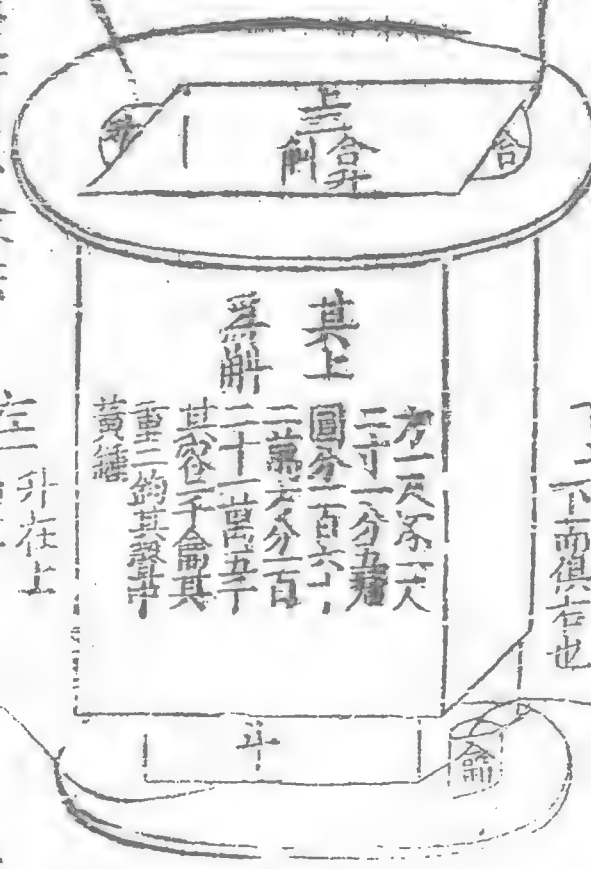 上三
合升
斛
合
其上
爲斛
方一尺深一尺
二寸一分五釐
圓分一百六十
二萬方分一百
二十一萬五千
其容二千龠其
重二鈞其聲中
黃鍾
斗
龠
下而俱右也
升在上